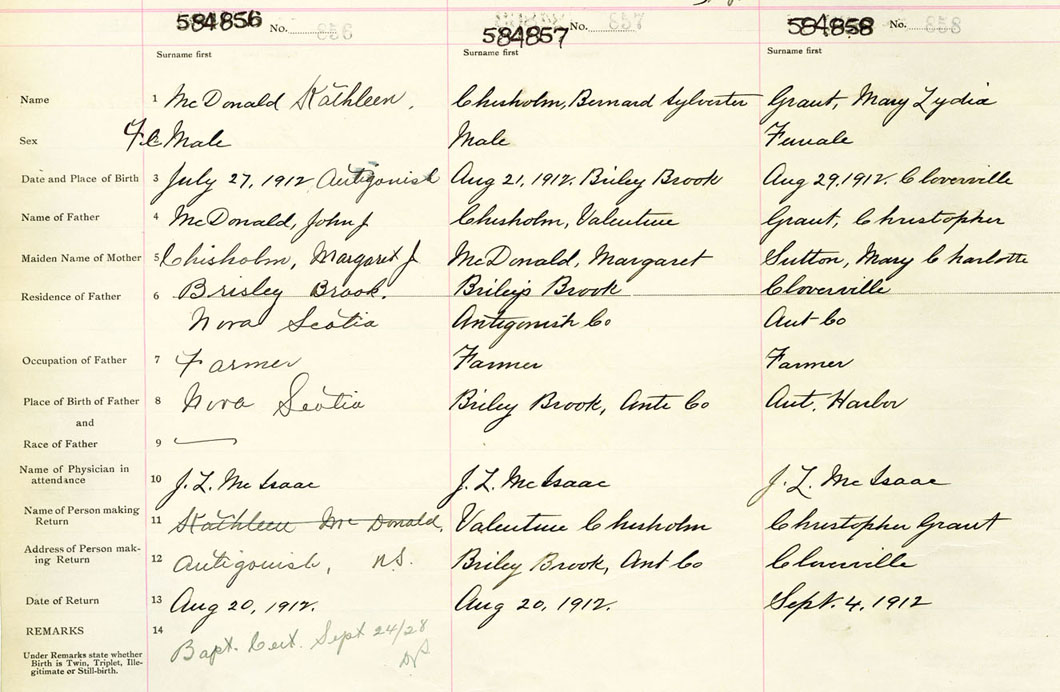 584856 No. 856 584857 No. 857 584858 No. 858
Surname first Surname first Surname first
Name 1 McDonald Kathleen, Chisholm, Bernard Sylvester Grant, Mary Lydia
Sex Fe Male Male Female
Date and Place of Birth 3 July 27, 1912 Antigonish Aug 21, 1912. Briley Brook Aug 29, 1912. Cloverville
Name of Father 4 McDonald, John J Chisholm, Valentine Grant, Christopher
Maiden Name of Mother 5 Chisholm, Margaret J McDonald, Margaret Sutton, Mary Charlotte
Residence of Father 6 Brisley Brook. Brileys Brook Cloverville
Nova Scotia Antigonish Co Ant Co
Occupation of Father 7 Farmer Farmer Farmer
Place of Birth of Father 8 Nova Scotia Briley Brook, Ante Co Ant. Harbor
and
Race of Father 9
Name of Physician in
attendance 10 J. L. McIsaac J. L. McIsaac J. L. McIsaac
Name of Person making
Return 11 Kathleen McDonald, Valentine Chisholm Christopher Grant
Address of Person mak-
ing Return 12 Antigonish, N.S. Briley Brook, Ant Co Cloverville
Date of Return 13 Aug 20, 1912. Aug 20, 1912. Sept. 4, 1912
REMARKS 14 Bapt. Cert. Sept 24/28
Under Remarks state whether
Birth is Twin, Triplet, Ille-
gitimate or Still-birth.